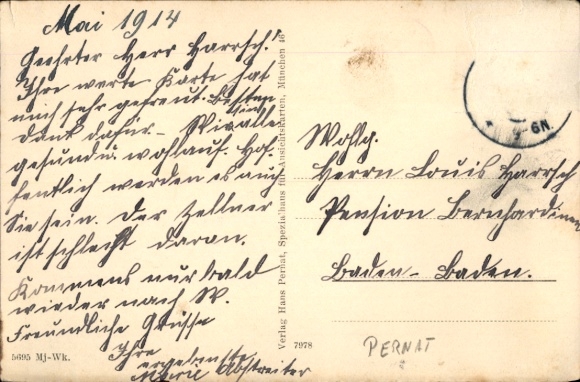 Mai 1914
Geehrter Herr Harrsch!
Ihre werte Karte hat
mich sehr gefreut. Besten
Dank dafür. – Wir alle sind
gesund u. wohlauf. Hof-
fentlich werden es auch
Sie sein. Der Zellner
ist schlecht daran.
Kommens nur bald
wieder nach W.
Freundliche Grüsse
Ihre
ergebenste
Marie Abstreiter
5695 Mj-Wk.
Verlag Hans Pernat, Spezialhaus für Ansichtskarten, München 46
7978
6N.
Wohlg.
Herrn Louis Harrsch
Pension Bernhardiner
Baden-Baden.
PERNAT